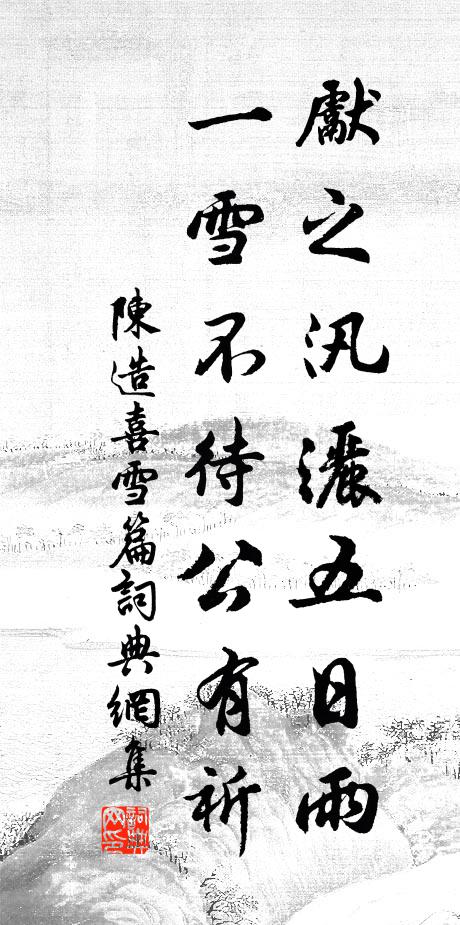 獻之汛灑五日雨
一雪不待公有祈
陳造喜雪篇詞典網集